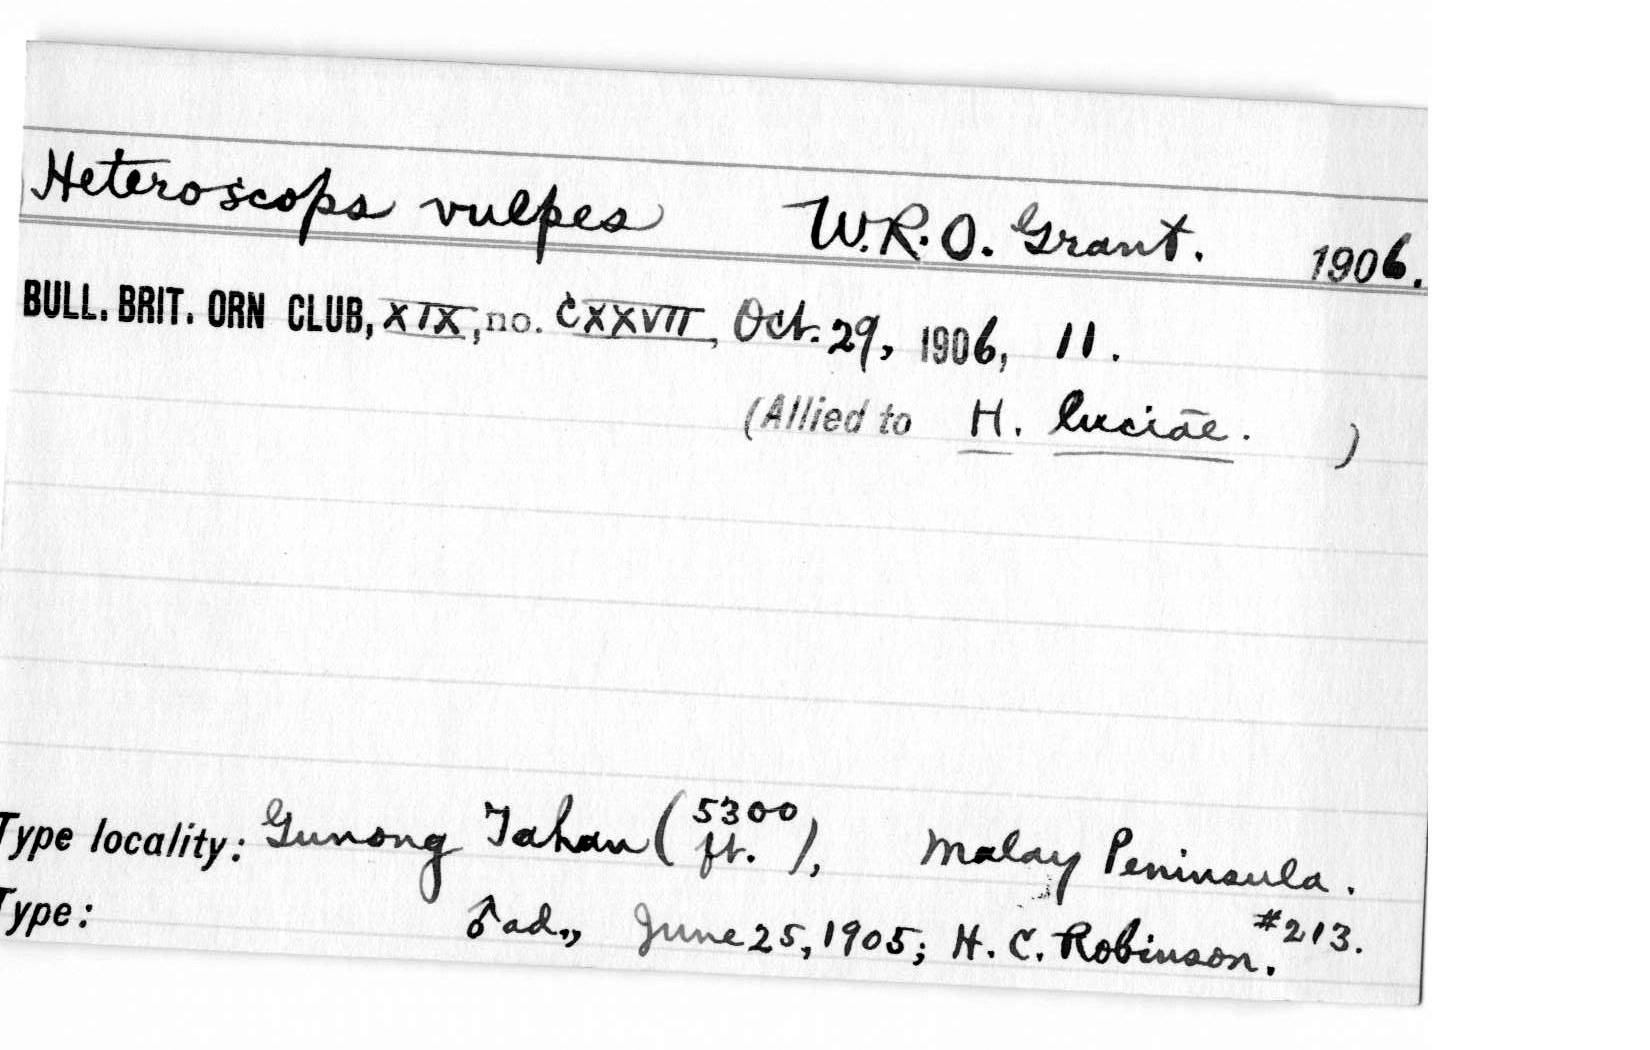 Heteroscops vulpes W.R.O. Grant. 1906.
BULL. BRIT. ORN CLUB, XIX, no. CXXVII, Oct. 29, 1906, 11.
(Allied to H. luciae. )
Type locality: Gunong Tahan (5300 ft.), Malay Peninsula.
Type: ♂ ad., June 25, 1905; H. C. Robinson. #213.